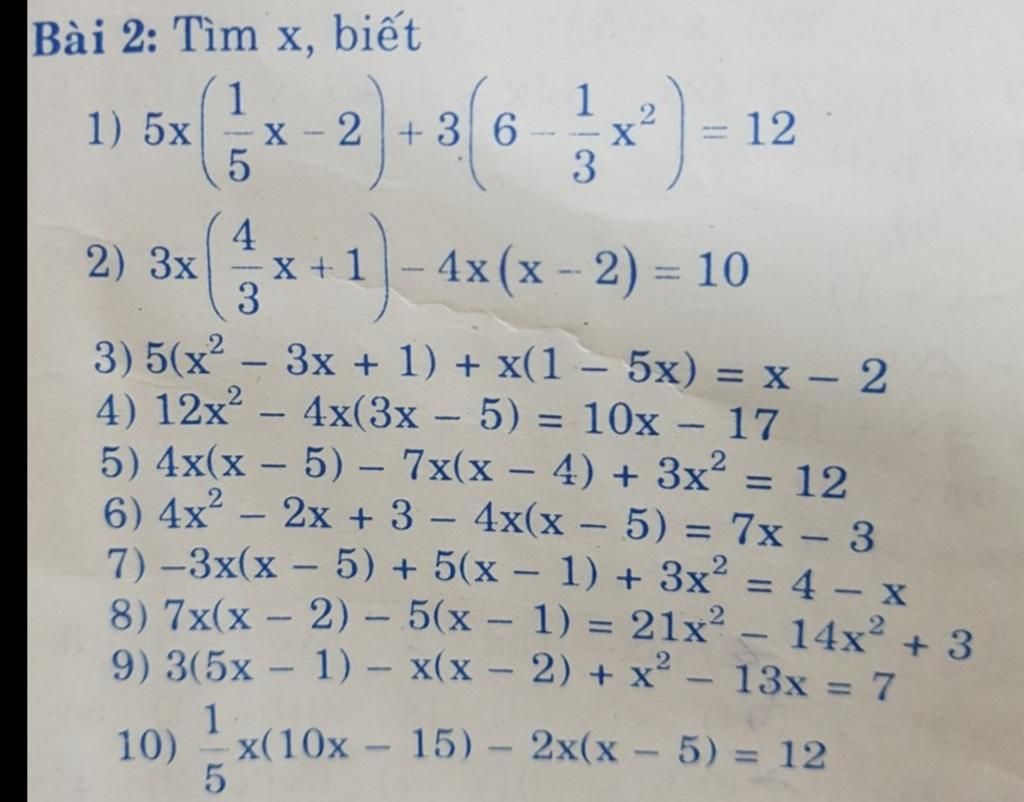 Bài 2: Tìm x, biết
1) 5x(1/5 x - 2) + 3(6 - 1/3 x²) = 12
2) 3x(4/3 x + 1) - 4x(x - 2) = 10
3) 5(x² - 3x + 1) + x(1 - 5x) = x - 2
4) 12x² - 4x(3x - 5) = 10x - 17
5) 4x(x - 5) - 7x(x - 4) + 3x² = 12
6) 4x² - 2x + 3 - 4x(x - 5) = 7x - 3
7) -3x(x - 5) + 5(x - 1) + 3x² = 4 - x
8) 7x(x - 2) - 5(x - 1) = 21x² - 14x² + 3
9) 3(5x - 1) - x(x - 2) + x² - 13x = 7
10) 1/5 x(10x - 15) - 2x(x - 5) = 12